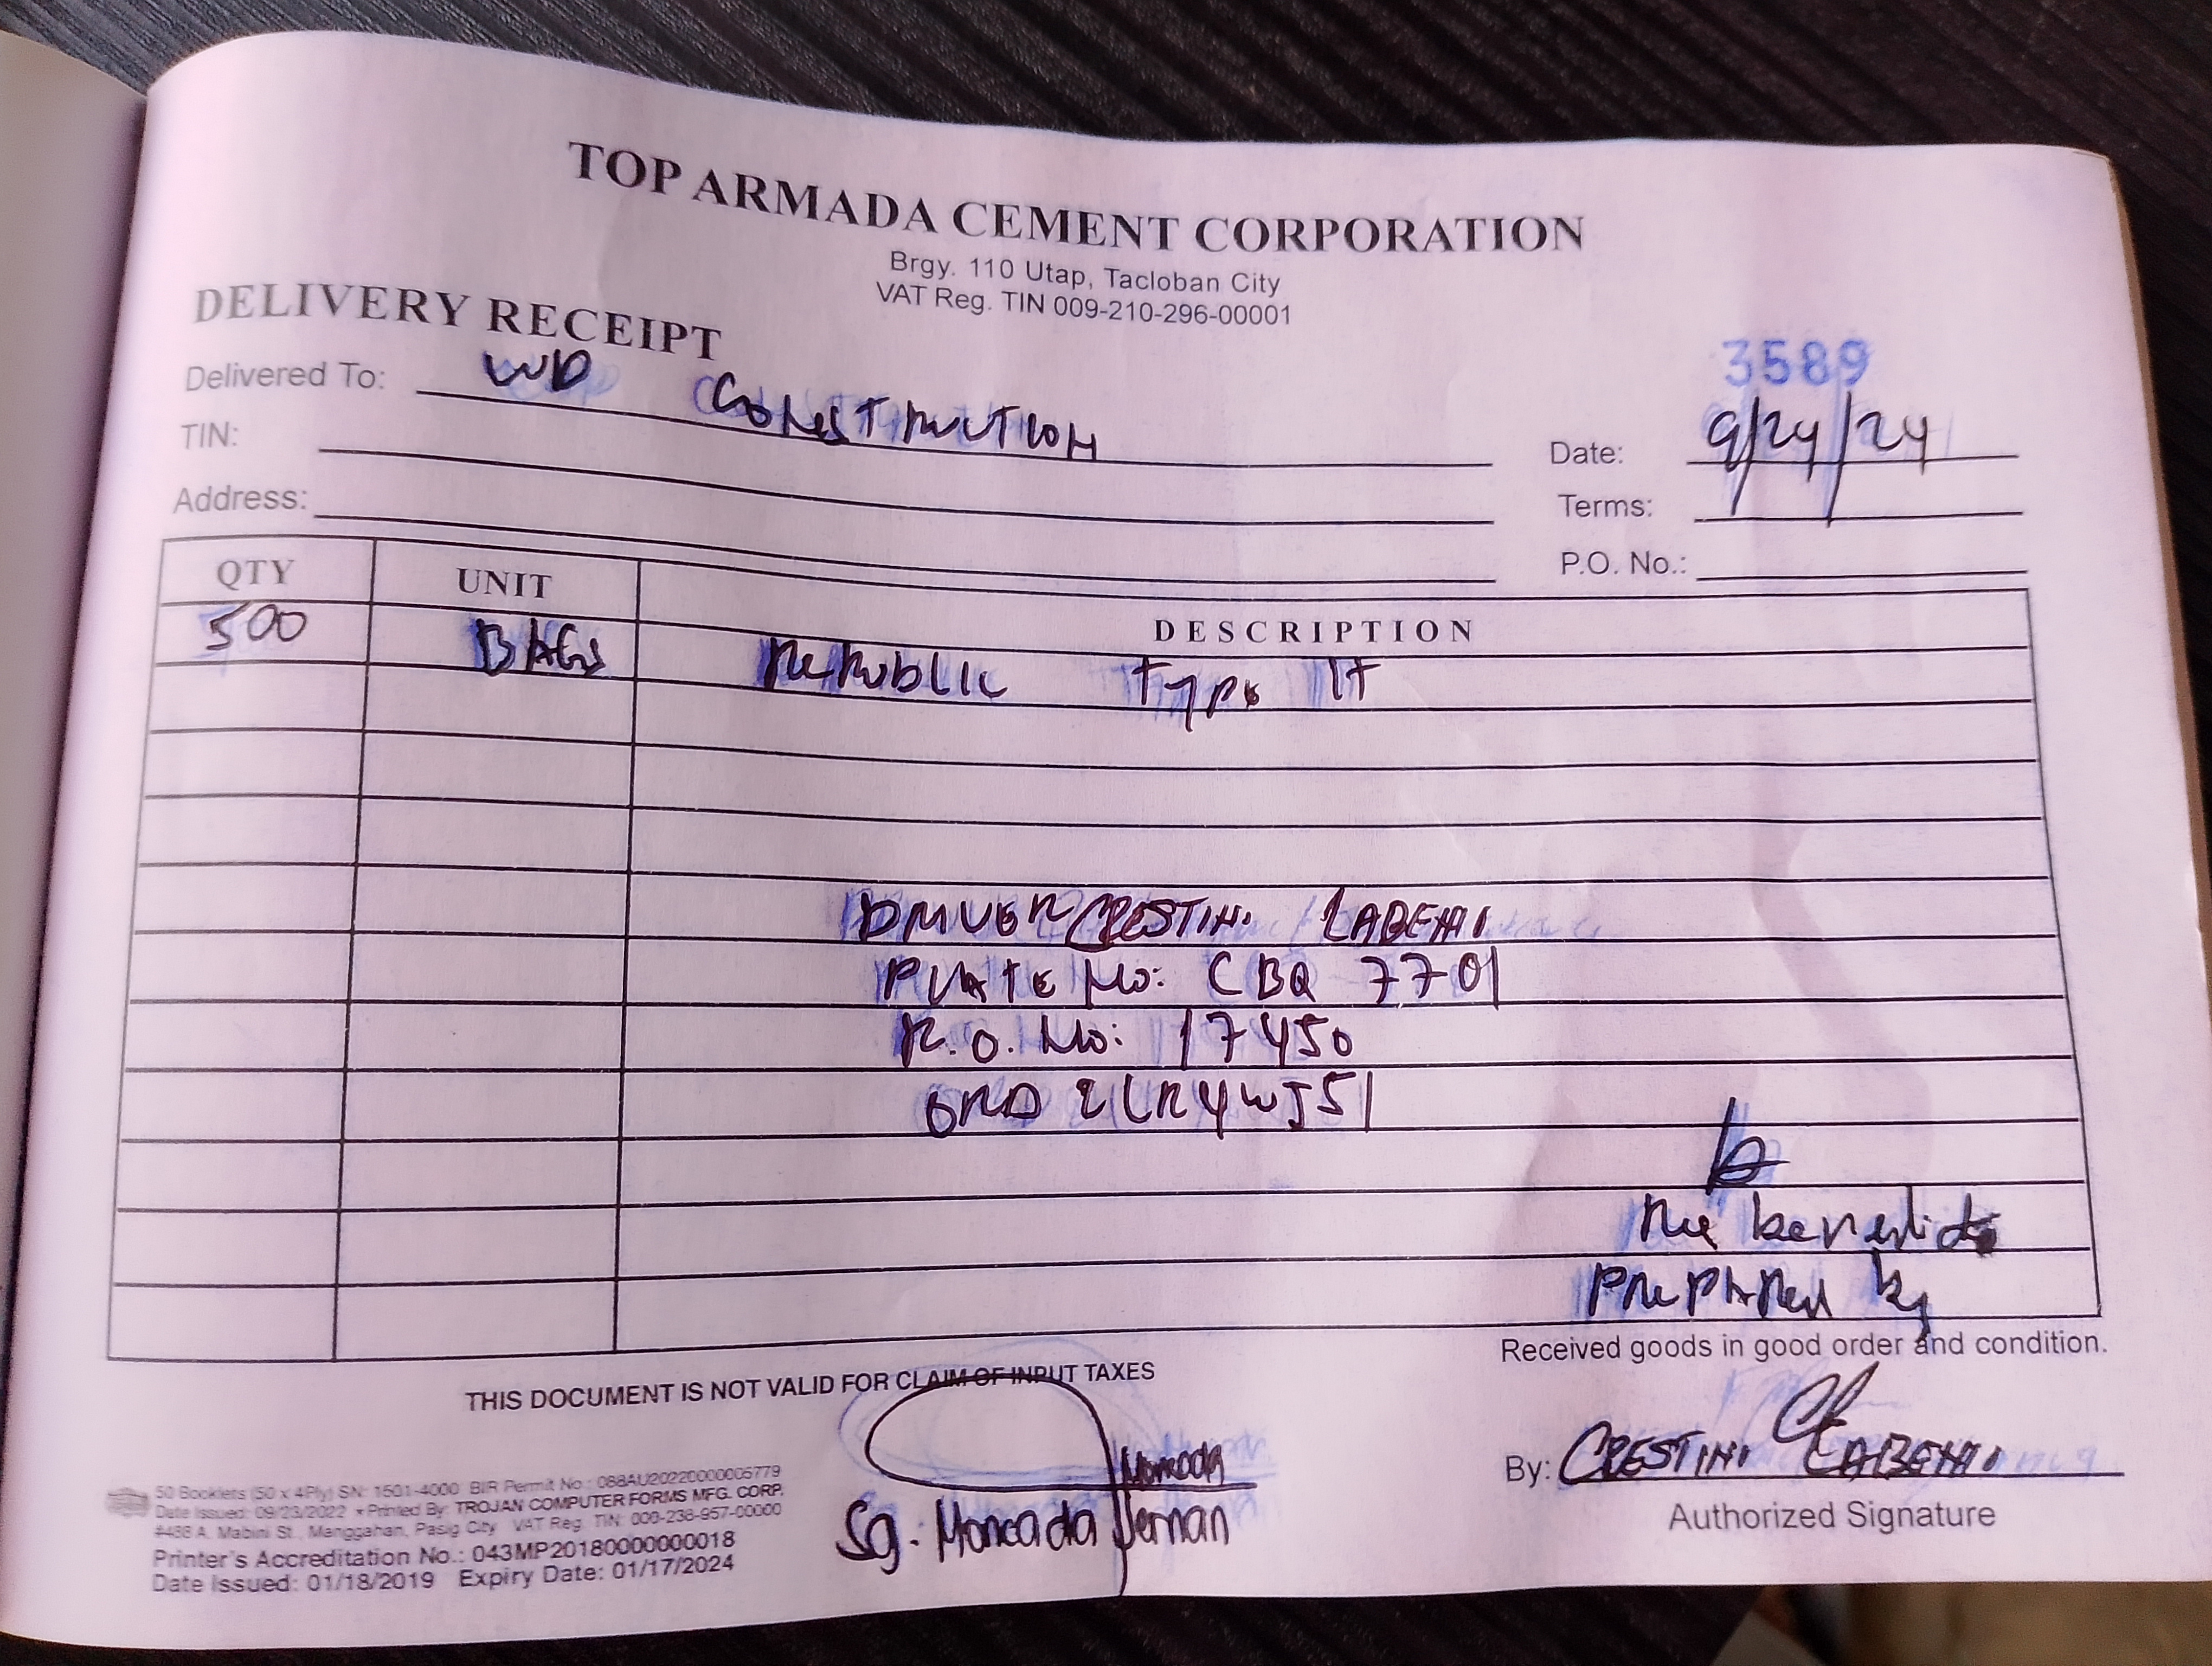 TOP ARMADA CEMENT CORPORATION
Brgy. 110 Utap, Tacloban City
VAT Reg. TIN 009-210-296-00001
DELIVERY RECEIPT
3589
Delivered To: WD CONSTRUCTION
Date: 9/24/24
TIN:
Terms:
Address:
P.O. No.:
QTY UNIT DESCRIPTION
500 BAGS REPUBLIC TYPE 1T
DRIVER CRESTINI LABENI
PLATE No: CBQ 7701
R.O. No: 17450
ORD 2LR4WJ51
Prepared by
Received goods in good order and condition.
THIS DOCUMENT IS NOT VALID FOR CLAIM OF INPUT TAXES
By: CRESTINI LABENI
Authorized Signature
Moncada
Sg. Moncada Jernan
50 Booklets (50 x 4Ply) SN: 1501-4000 BIR Permit No.: 088AU20220000005779
Date Issued: 09/23/2022 • Printed By: TROJAN COMPUTER FORMS MFG. CORP.
#488 A. Mabini St., Manggahan, Pasig City VAT Reg. TIN: 000-238-957-00000
Printer's Accreditation No.: 043MP20180000000018
Date Issued: 01/18/2019 Expiry Date: 01/17/2024